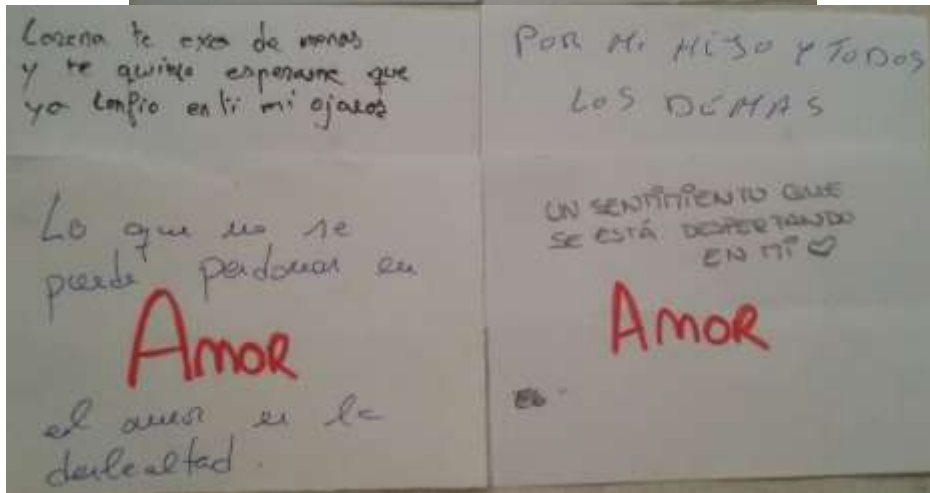 Lorena te exo de menos
y te quiero esperame que
yo confio en ti mi ojasos
Lo que no se
puede perdonar en
Amor
el amor es la
deslealtad.
POR MI HIJO Y TODOS
LOS DEMAS
UN SENTIMIENTO QUE
SE ESTÁ DESPERTANDO
EN MI
AMOR